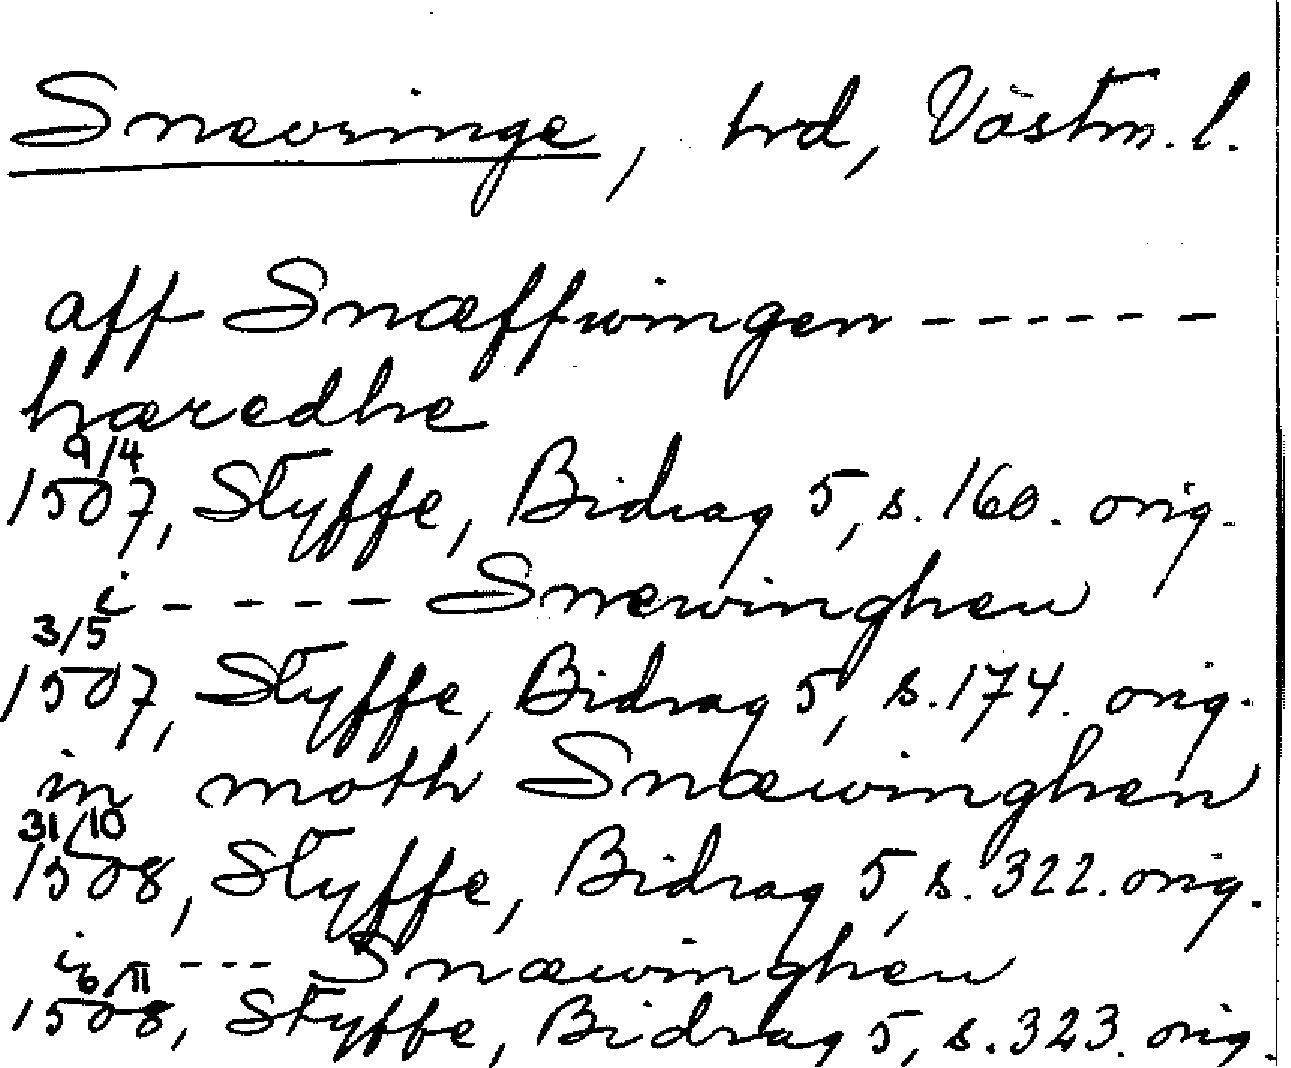 Snevringe, hrd, Västm. l.
aff Snæffwingen ------
hæredhe
9/4
1507, Styffe, Bidrag 5, s. 160. orig.
i ----- Snewinghen
3/5
1507, Styffe, Bidrag 5, s. 174. orig.
in moth Snæwinghen
31/10
1508, Styffe, Bidrag 5, s. 322. orig.
i --- Snæwinghen
6/11
1508, Styffe, Bidrag 5, s. 323. orig.